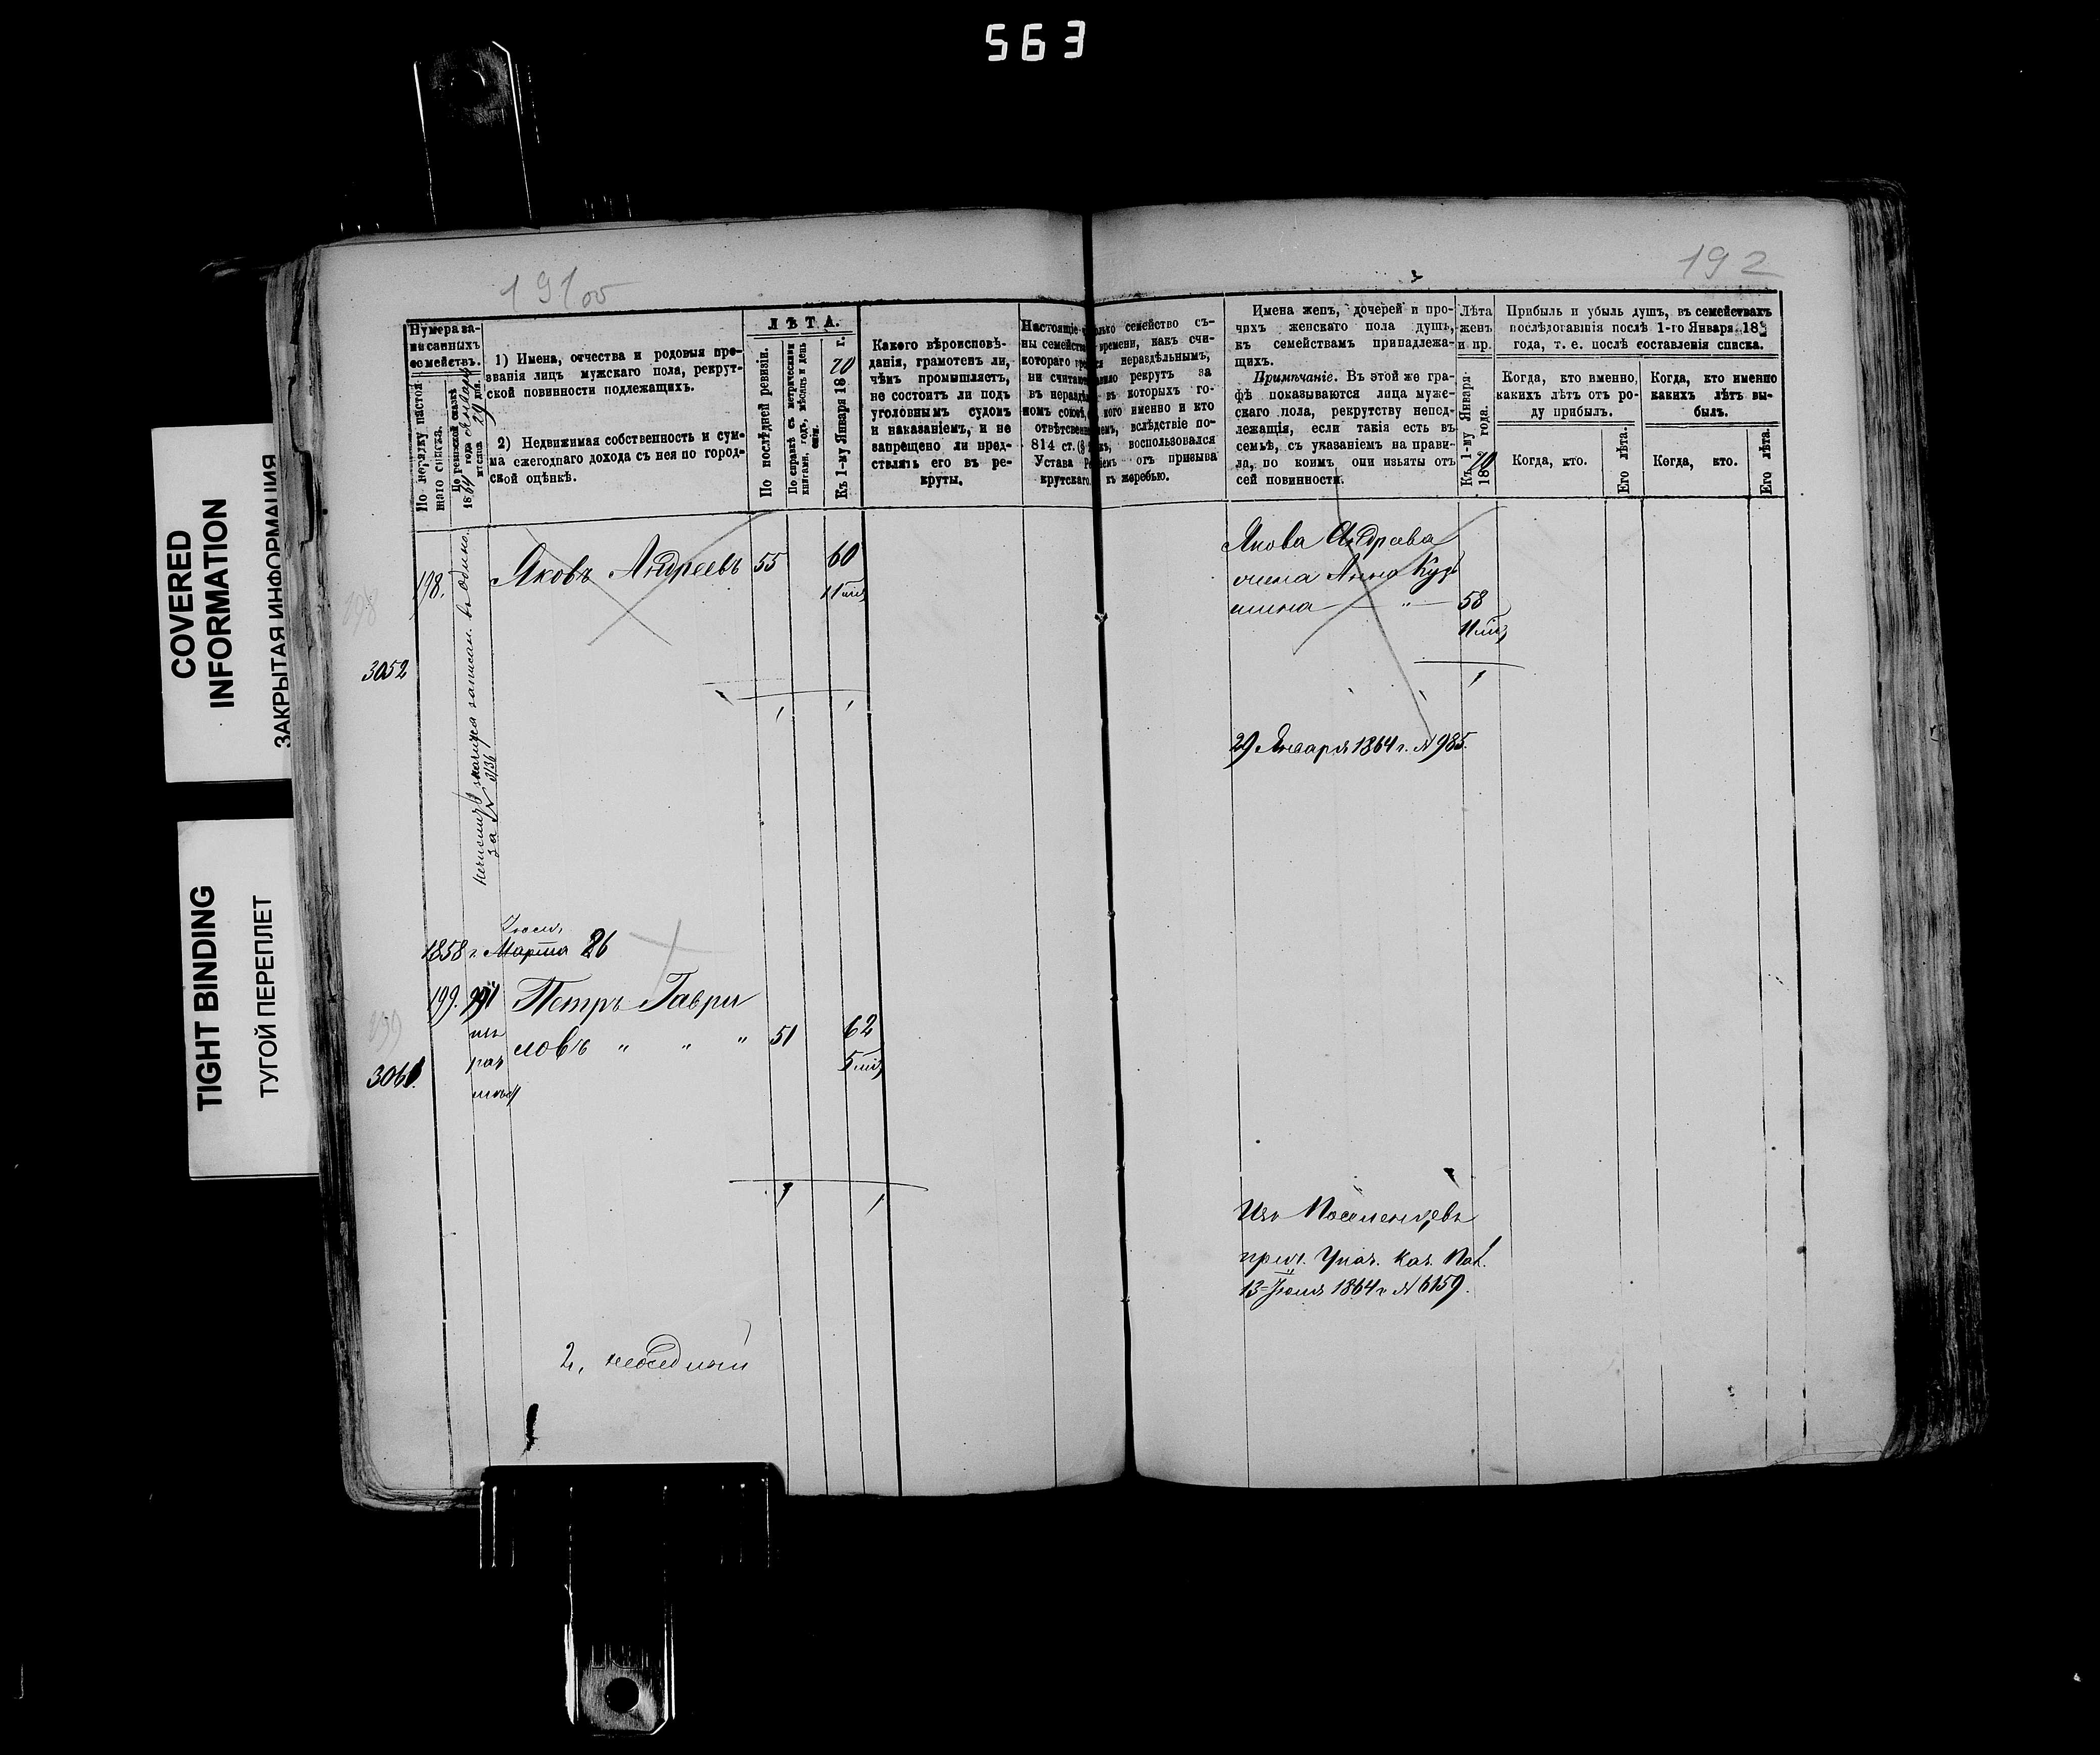 563
COVERED
INFORMATION
ЗАКРЫТАЯ ИНФОРМАЦИЯ
TIGHT BINDING
ТУГОЙ ПЕРЕПЛЕТ
191об
192
Нумера за-
писанныхъ
семействъ.
По порядку настоя-
щаго списка.
По ревизской сказкѣ
1864 года Января
мѣсяца 29 дня.
1) Имена, отчества и родовыя про-
званія лицъ мужскаго пола, рекрут-
ской повинности подлежащихъ.
2) Недвижимая собственность и сум-
ма ежегоднаго дохода съ нея по город-
ской оцѣнкѣ.
ЛѢТА.
По послѣдней ревизіи.
По справкѣ съ метрическими
книгами, годъ, мѣсяцъ и день
Къ 1-му Января 1870 г.
Какого вѣроисповѣ-
данія, грамотенъ ли,
чѣмъ промышляетъ,
не состоитъ ли подъ
уголовнымъ судомъ
и наказаніемъ, и не
запрещено ли пред-
ставлять его въ ре-
круты.
Настоящіе
ны семейства
котораго
ни считаю
въ нераздѣ
номъ союзѣ,
отвѣтствен
814 ст. (§
Устава Ре
крутскаго.
семейство съ
времени, какъ счи-
нераздѣльнымъ,
рекрутъ за
въ которыхъ го-
кого именно и кто
вслѣдствіе по-
воспользовался
отъ призыва
къ жеребью.
Имена женъ, дочерей и про-
чихъ женскаго пола душъ,
къ семействамъ принадлежа-
щихъ.
Примѣчаніе. Въ этой же гра-
фѣ показываются лица муже-
скаго пола, рекрутству непод-
лежащія, если такія есть въ
семьѣ, съ указаніемъ на прави-
ла, по коимъ они изъяты отъ
сей повинности.
Лѣта
женъ
и пр.
Къ 1-му Января
1870 года.
Прибыль и убыль душъ, въ семействахъ
послѣдовавшія послѣ 1-го Января 18
года, т. е. послѣ составленія списка.
Когда, кто именно,
какихъ лѣтъ отъ ро-
ду прибылъ.
Когда, кто именно
какихъ лѣтъ вы-
былъ.
Когда, кто.
Его лѣта.
Когда, кто.
Его лѣта.
198
198.
3052
за № 3136
Яковъ Андреевъ 55 60
11 мѣ
Якова Андреева
жена Анна Кузь
мина — " — 58
11 мѣ
1
1 1
29 Января 1864 г. № 985.
Іюля
1858 г. Марта 26
199
199.
3061.
Петръ Гаври
ловъ " " " 51 62
5 мѣ
1 1
Изъ Поселенцевъ
13 Іюля 1864 г. № 6159.